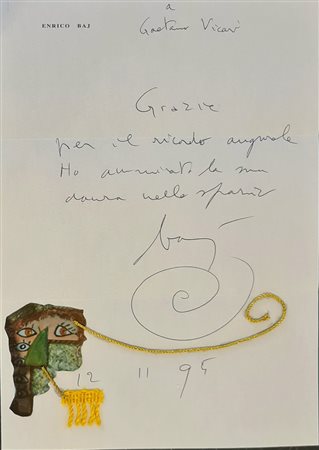 ENRICO BAJ
a
Gaetano Vicari
Grazie
per il ricordo augurale
Ho ammirato la sua
danza nello spazio
baj
12 11 95